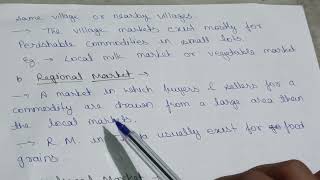 same village or nearby villages
→ The village markets exist mostly for
Perishable commodities in small lots.
Eg → Local milk market or vegetable market
b. Regional Market →
→ A market in which buyers & sellers for a
commodity are drawn from a large area than
the local markets.
→ R. M. in usually exist for food
grains.
Market →